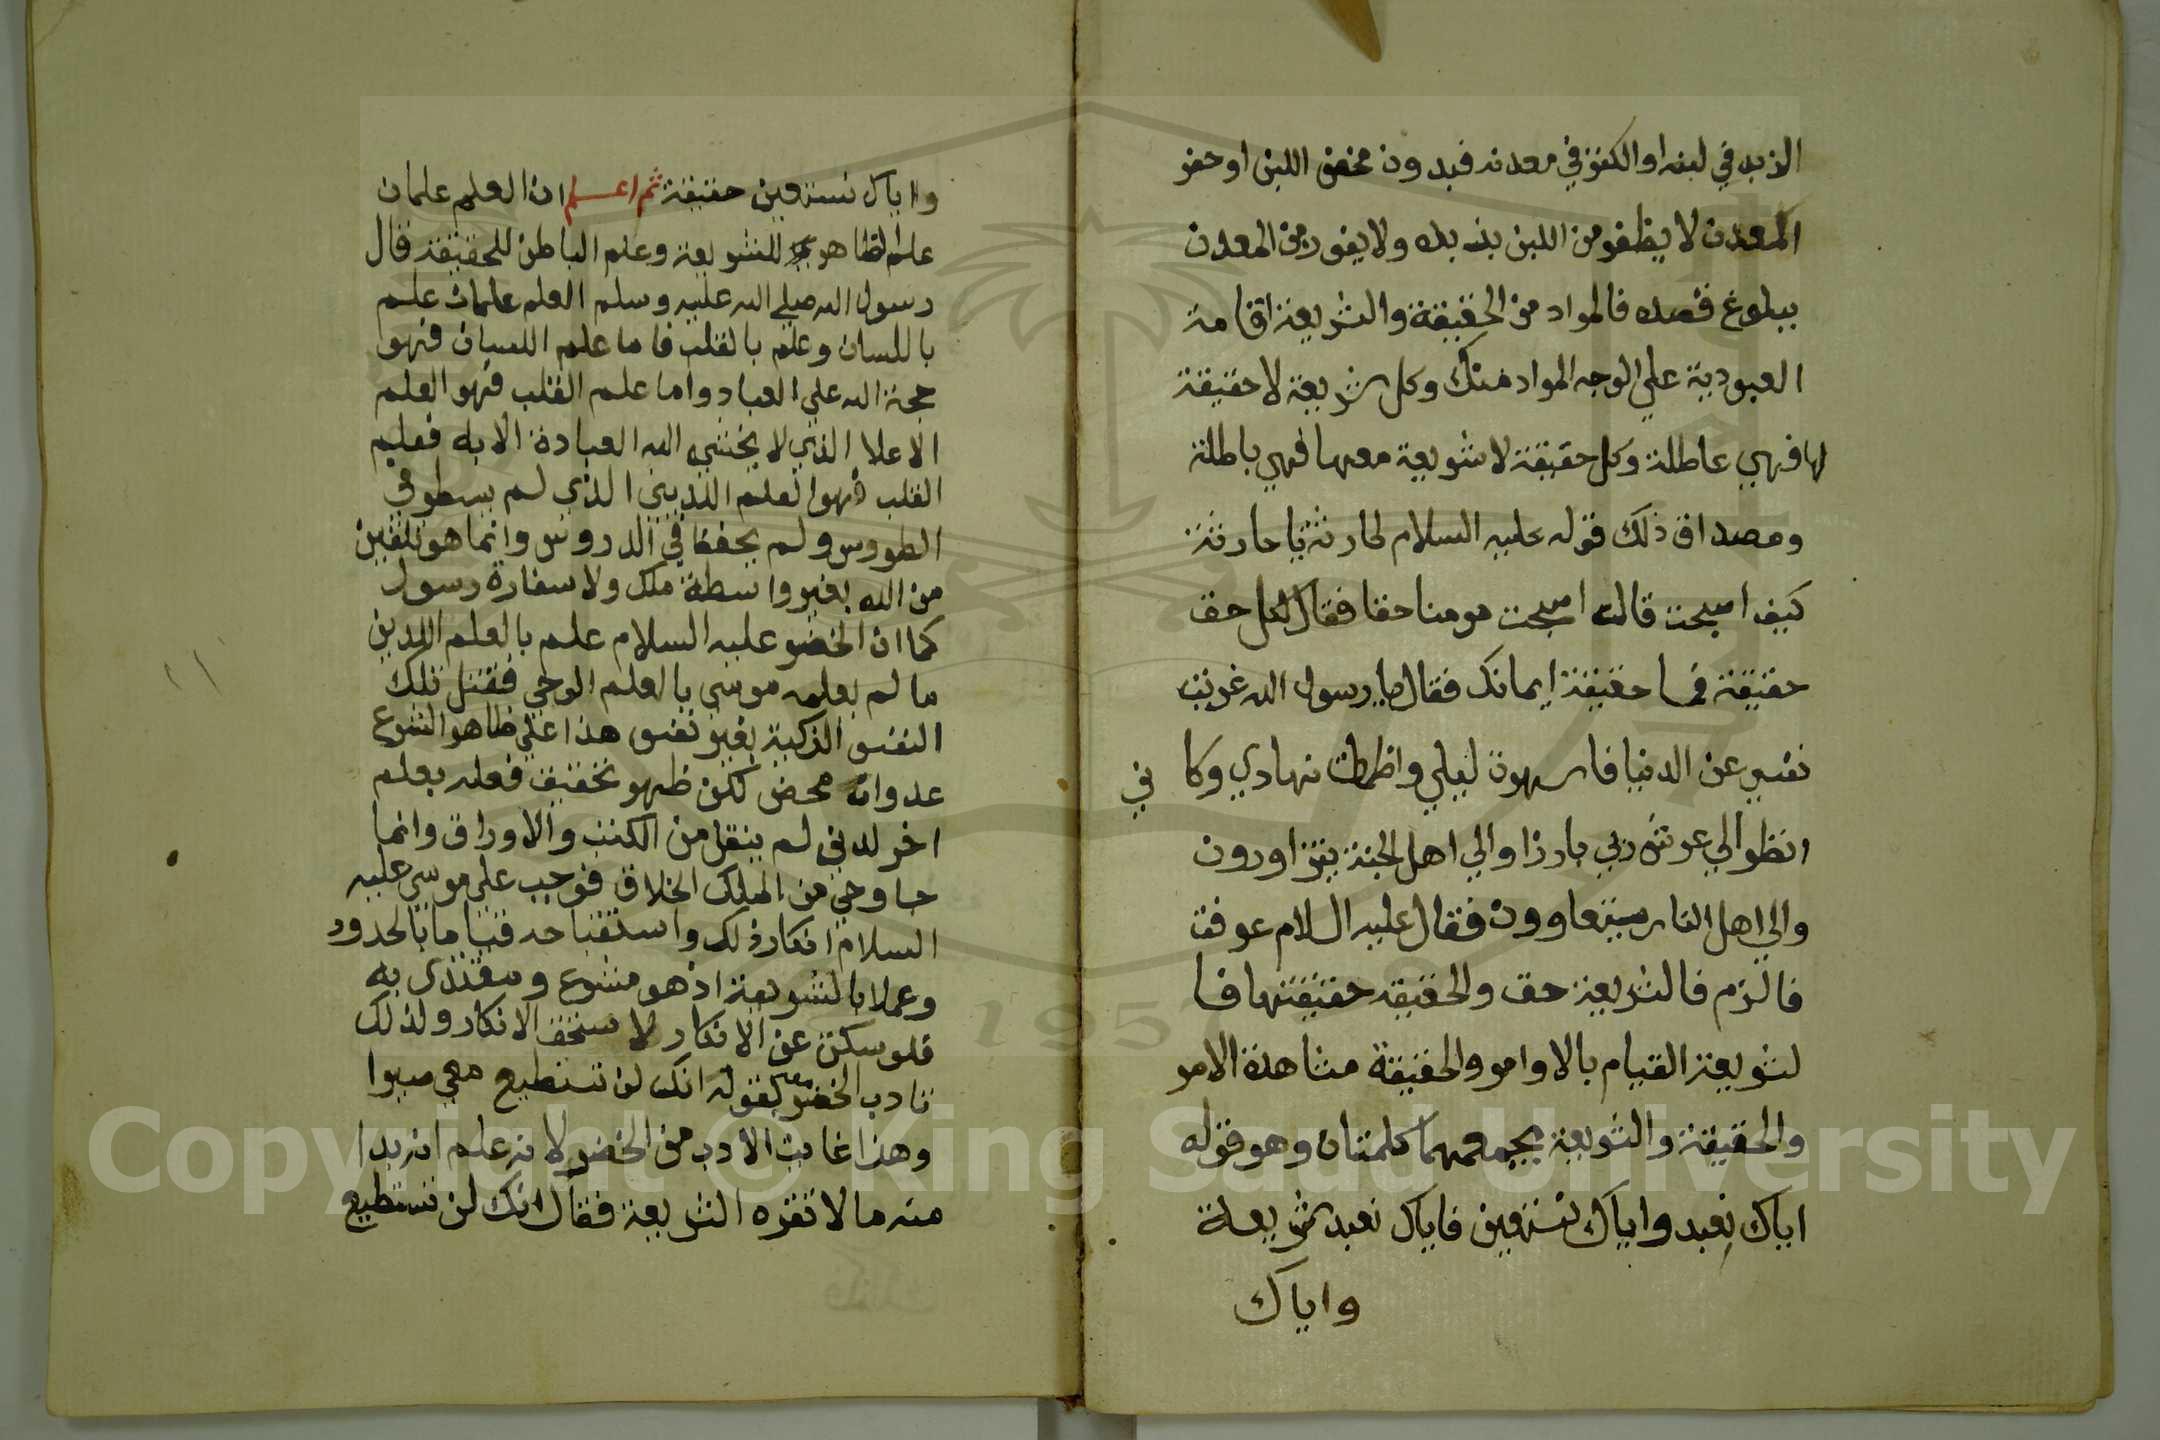 الزبد في لبنه او الكنز في معدنه فبدون مخض اللبن او حفر
المعدن لا يظفر من اللبن بزبده ولا يفوز من المعدن
ببلوغ قصده فالمراد من الحقيقة والشريعة اقامة
العبودية علي الوجه المراد منك وكل شريعة لا حقيقة
لها فهي عاطلة وكل حقيقة لا شريعة معها فهي باطلة
ومصداق ذلك قوله عليه السلام لحارثة يا حارثة
كيف اصبحت قال اصبحت مومنا حقا فقال لكل حق
حقيقة فما حقيقة ايمانك فقال يا رسول الله عزبت
نفسي عن الدنيا فاسهرة ليلي واظمات نهاري وكا ني
انظر الي عرش ربي بارزا والي اهل الجنة يتزاورون
والي اهل النار يتعاوون فقال عليه السلام عرفت
فالزم فالشريعة حق والحقيقه حقيقتها فا
لشريعة القيام بالاوامر والحقيقة مشاهدة الامر
والحقيقة والشريعة يجمعهما كلمتان وهو قوله
اياك نعبد واياك نستعين فاياك نعبد شريعة
واياك
واياك نستعين حقيقة ثم اعلم ان العلم علمان
علم الظاهر للشريعة وعلم الباطن للحقيقة قال
رسول الله صلي الله عليه وسلم العلم علمان علم
باللسان وعلم بالقلب فاما علم اللسان فهو
حجة الله علي العباد واما علم القلب فهو العلم
الاعلا الذي لا يخشي الله العبادة الا به فعلم
القلب فهو العلم اللديني الذي لم يسطر في
الطروس ولم يحفظ في الدروس وانما هو تلقين
من الله بغير واسطة ملك ولا سفارة رسول
كما ان الخضر عليه السلام علم بالعلم اللدين
ما لم يعلمه موسي بالعلم الوحي فقتل تلك
النفس الزكية بغير نفس هذا علي ظاهر الشرع
عدوان محض لكن ظهر تخفيف فعله بعلم
اخر لدني لم ينقل من الكتب والاوراق وانما
جا وحي من الملك الخلاق فوجب علي موسي عليه
السلام انكار ذلك واستقباحه قياما بالحدود
وعملا بالشريعة اذ هو مشرع ومقتدي به
فلو سكت عن الانكار لاستخف الانكار ولذلك
تادب الخضر معه بقوله انك لن تستطيع معي صبرا
وهذا غايت الادب من الخضر لانه علم انه بدا
منه ما لا تقره الشريعة فقال انك لن تستطيع